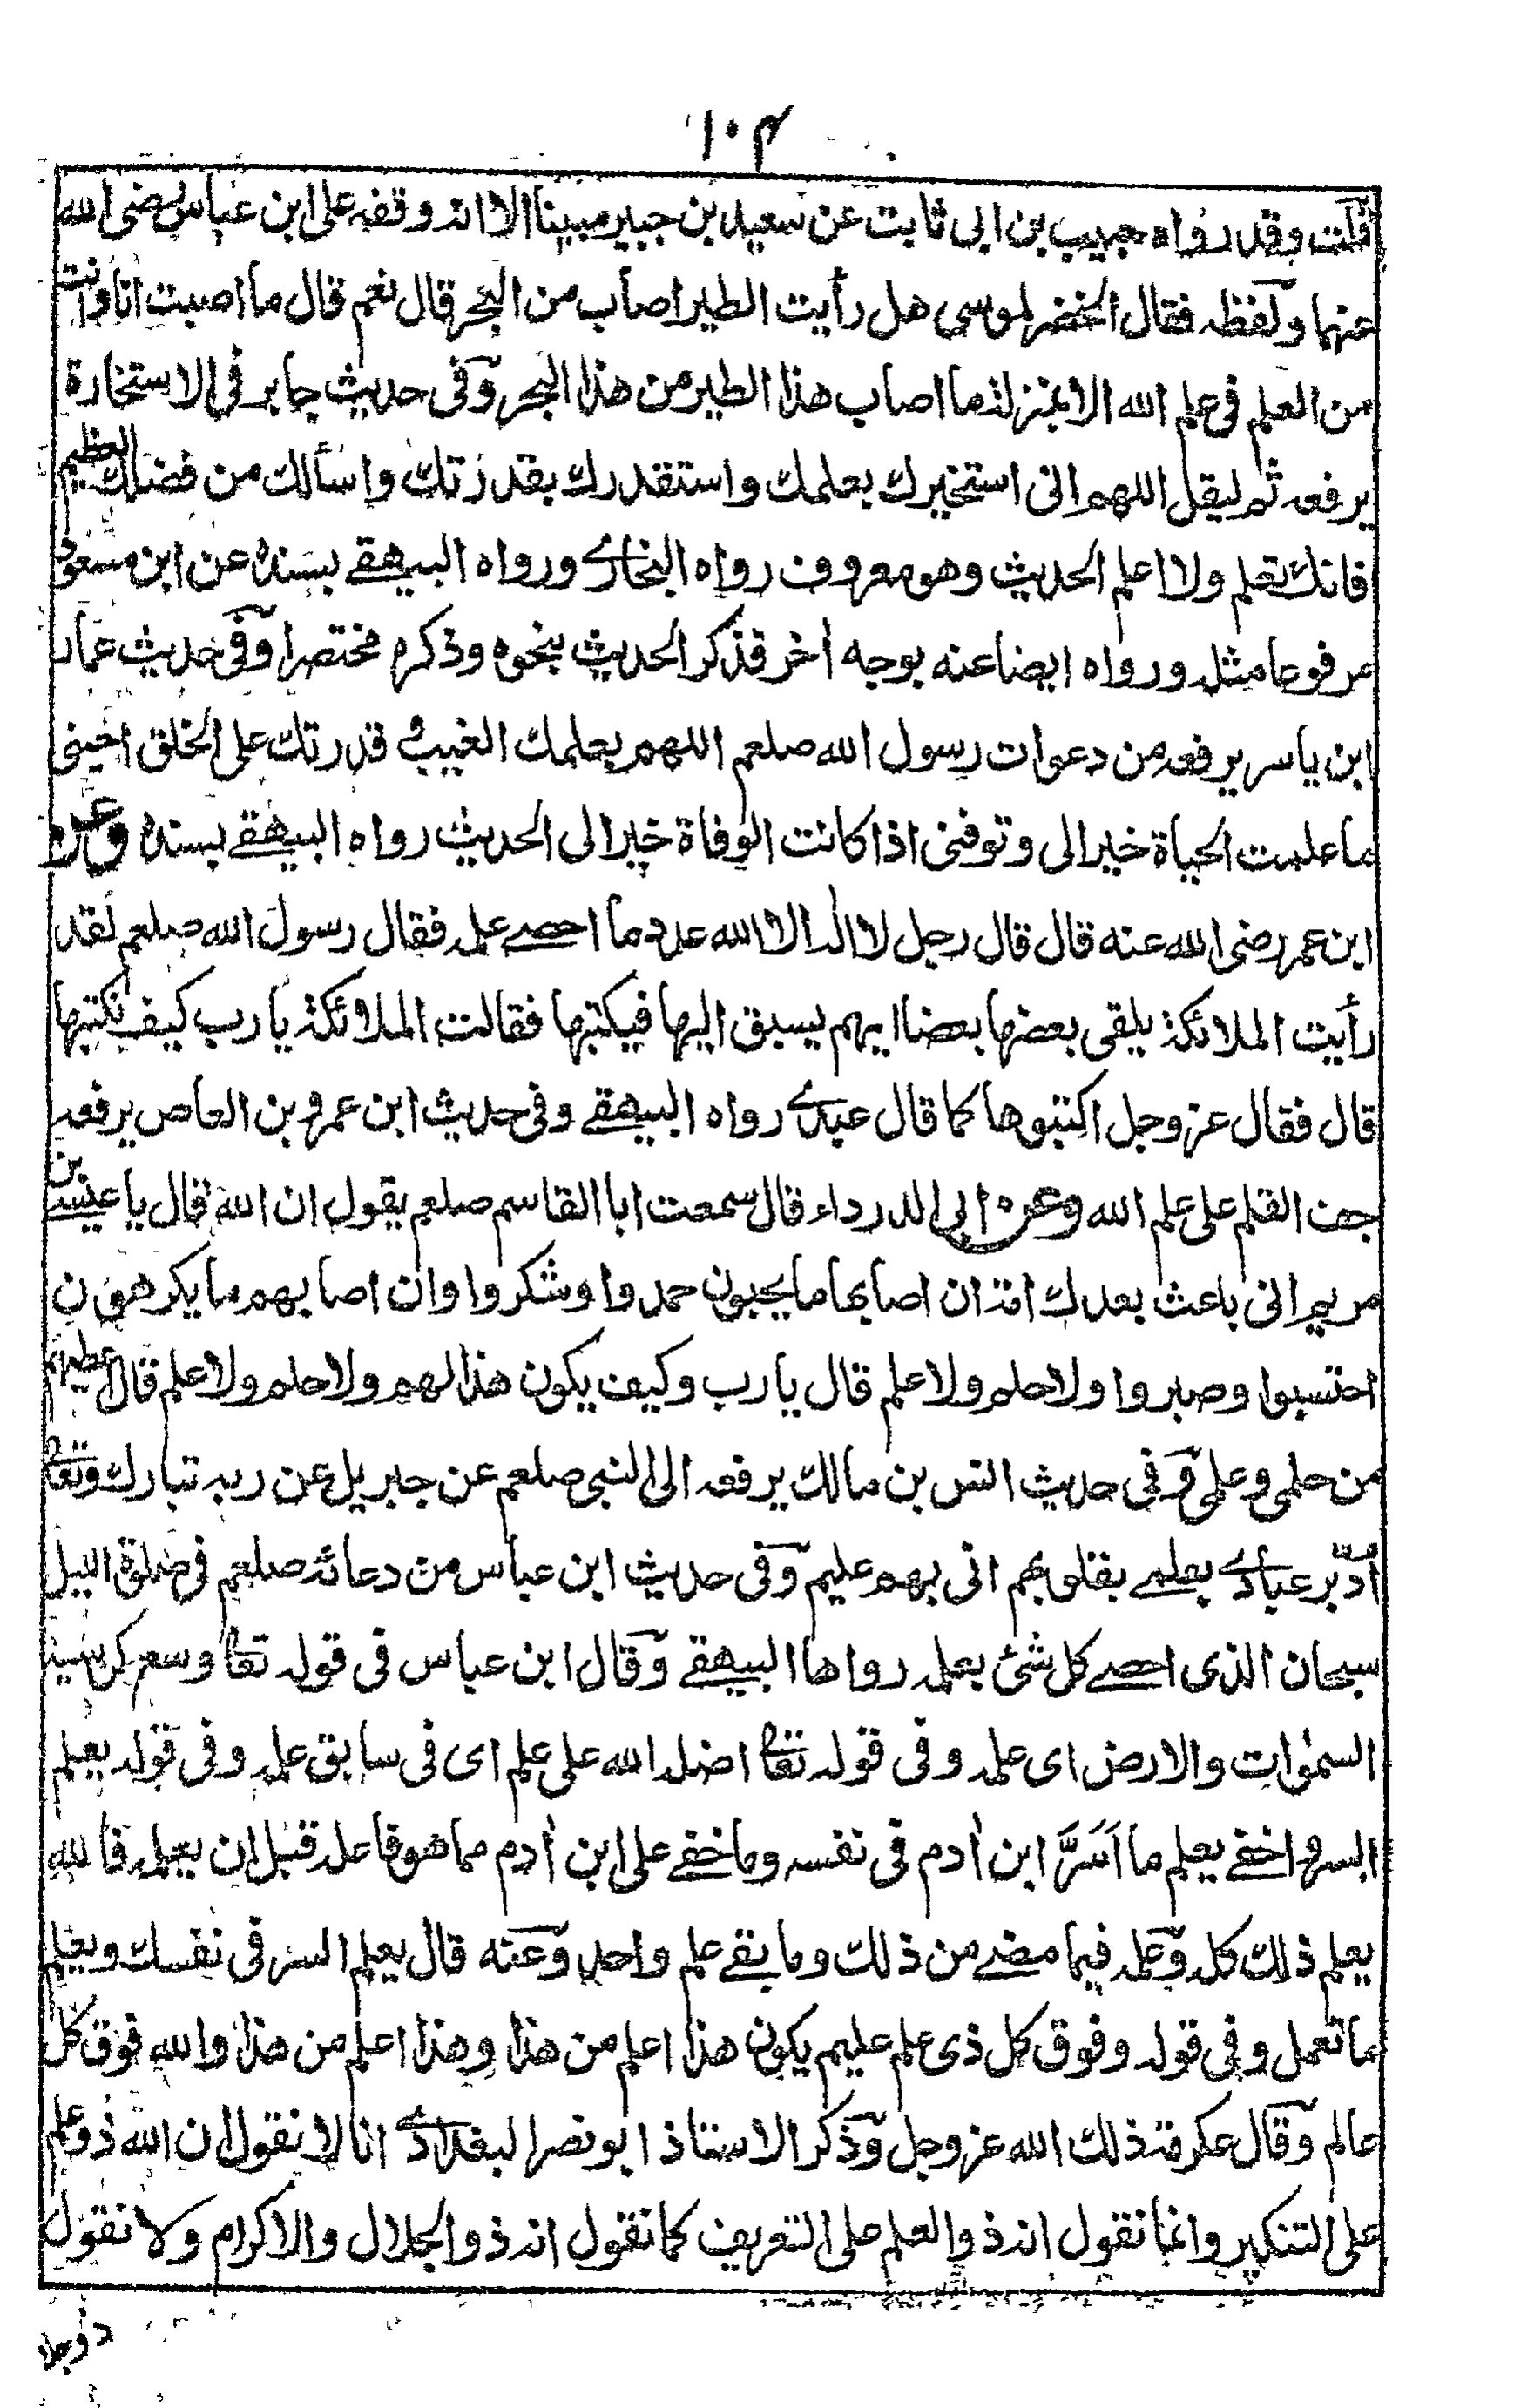 ١٠٤
قلت وقد رواه حبيب بن ابى ثابت عن سعيد بن جبير مبينا الا انه وقفه على ابن عباس رضى الله
عنهما ولفظه فقال الخضر لموسى هل رأيت الطير اصاب من البحر قال نعم قال ما اصبت انا وانت
من العلم فى علم الله الا بمنزلة ما اصاب هذا الطير من هذا البحر وفى حديث جابر فى الاستخارة
يرفعه ثم ليقل اللهم انى استخيرك بعلمك واستقدرك بقدرتك واسألك من فضلك العظيم
فانك تعلم ولا اعلم الحديث وهو معروف رواه البخارے ورواه البيهقے بسنده عن ابن مسعود
مرفوعا مثله ورواه ايضا عنه بوجه اٰخر فذكر الحديث بنحوه وذكره مختصرا وفى حديث عمار
ابن ياسر يرفعه من دعوات رسول الله صلعم اللهم بعلمك الغيب و قدرتك على الخلق احينى
ما علمت الحياة خيرا لى وتوفنى اذا كانت الوفاة خيرا لى الحديث رواه البيهقے بسنده وعن
ابن عمر رضى الله عنه قال قال رجل لا اله الا الله عدد ما احصے علمه فقال رسول الله صلعم لقد
رأيت الملائكة يلقى بعضها بعضا ايهم يسبق اليها فيكتبها فقالت الملائكة يا رب كيف نكتبها
قال فقال عز وجل اكتبوها كما قال عبدے رواه البيهقے وفى حديث ابن عمرو بن العاص يرفعه
جف القلم على علم الله وعن ابى الدرداء قال سمعت ابا القاسم صلعم يقول ان الله قال يا عيسے بن
مريم انى باعث بعدك امة ان اصابها ما يحبون حمدوا وشكروا وان اصابهم ما يكرهون
احتسبوا وصبروا ولا حلم ولا علم قال يا رب وكيف يكون هذا لهم ولا حلم ولا علم قال اعطيهم
من حلمى وعلمى وفى حديث انس بن مالك يرفعه الى النبى صلعم عن جبريل عن ربه تبارك وتعالى
اُدبّر عبادے بعلمے بقلوبهم انى بهم عليم وفى حديث ابن عباس من دعائه صلعم فى صلوة الليل
سبحان الذى احصے كل شئ بعلمه رواها البيهقے وقال ابن عباس فى قوله تعا وسع كرسيه
السمٰوات والارض اى علمه وفى قوله تعا اضله الله على علم اى فى سابق علمه وفى قوله يعلم
السر واخفے يعلم ما اَسَرَّ ابن اٰدم فى نفسه وما خفے على ابن اٰدم مما هو فاعله قبل ان يعمله فالله
يعلم ذلك كله وعلمه فيما مضے من ذلك وما بقے علم واحد وعنه قال يعلم السر فى نفسك ويعلم
ما تعمل وفى قوله وفوق كل ذى علم عليم يكون هذا اعلم من هذا وهذا اعلم من هذا والله فوق كل
عالم وقال عكرمة ذلك الله عز وجل وذكر الاستاذ ابو نصر البغدادے انا لا نقول ان الله ذو علم
على التنكير وانما نقول انه ذو العلم على التعريف كما نقول انه ذو الجلال والاكرام ولا نقول
ذو جلال